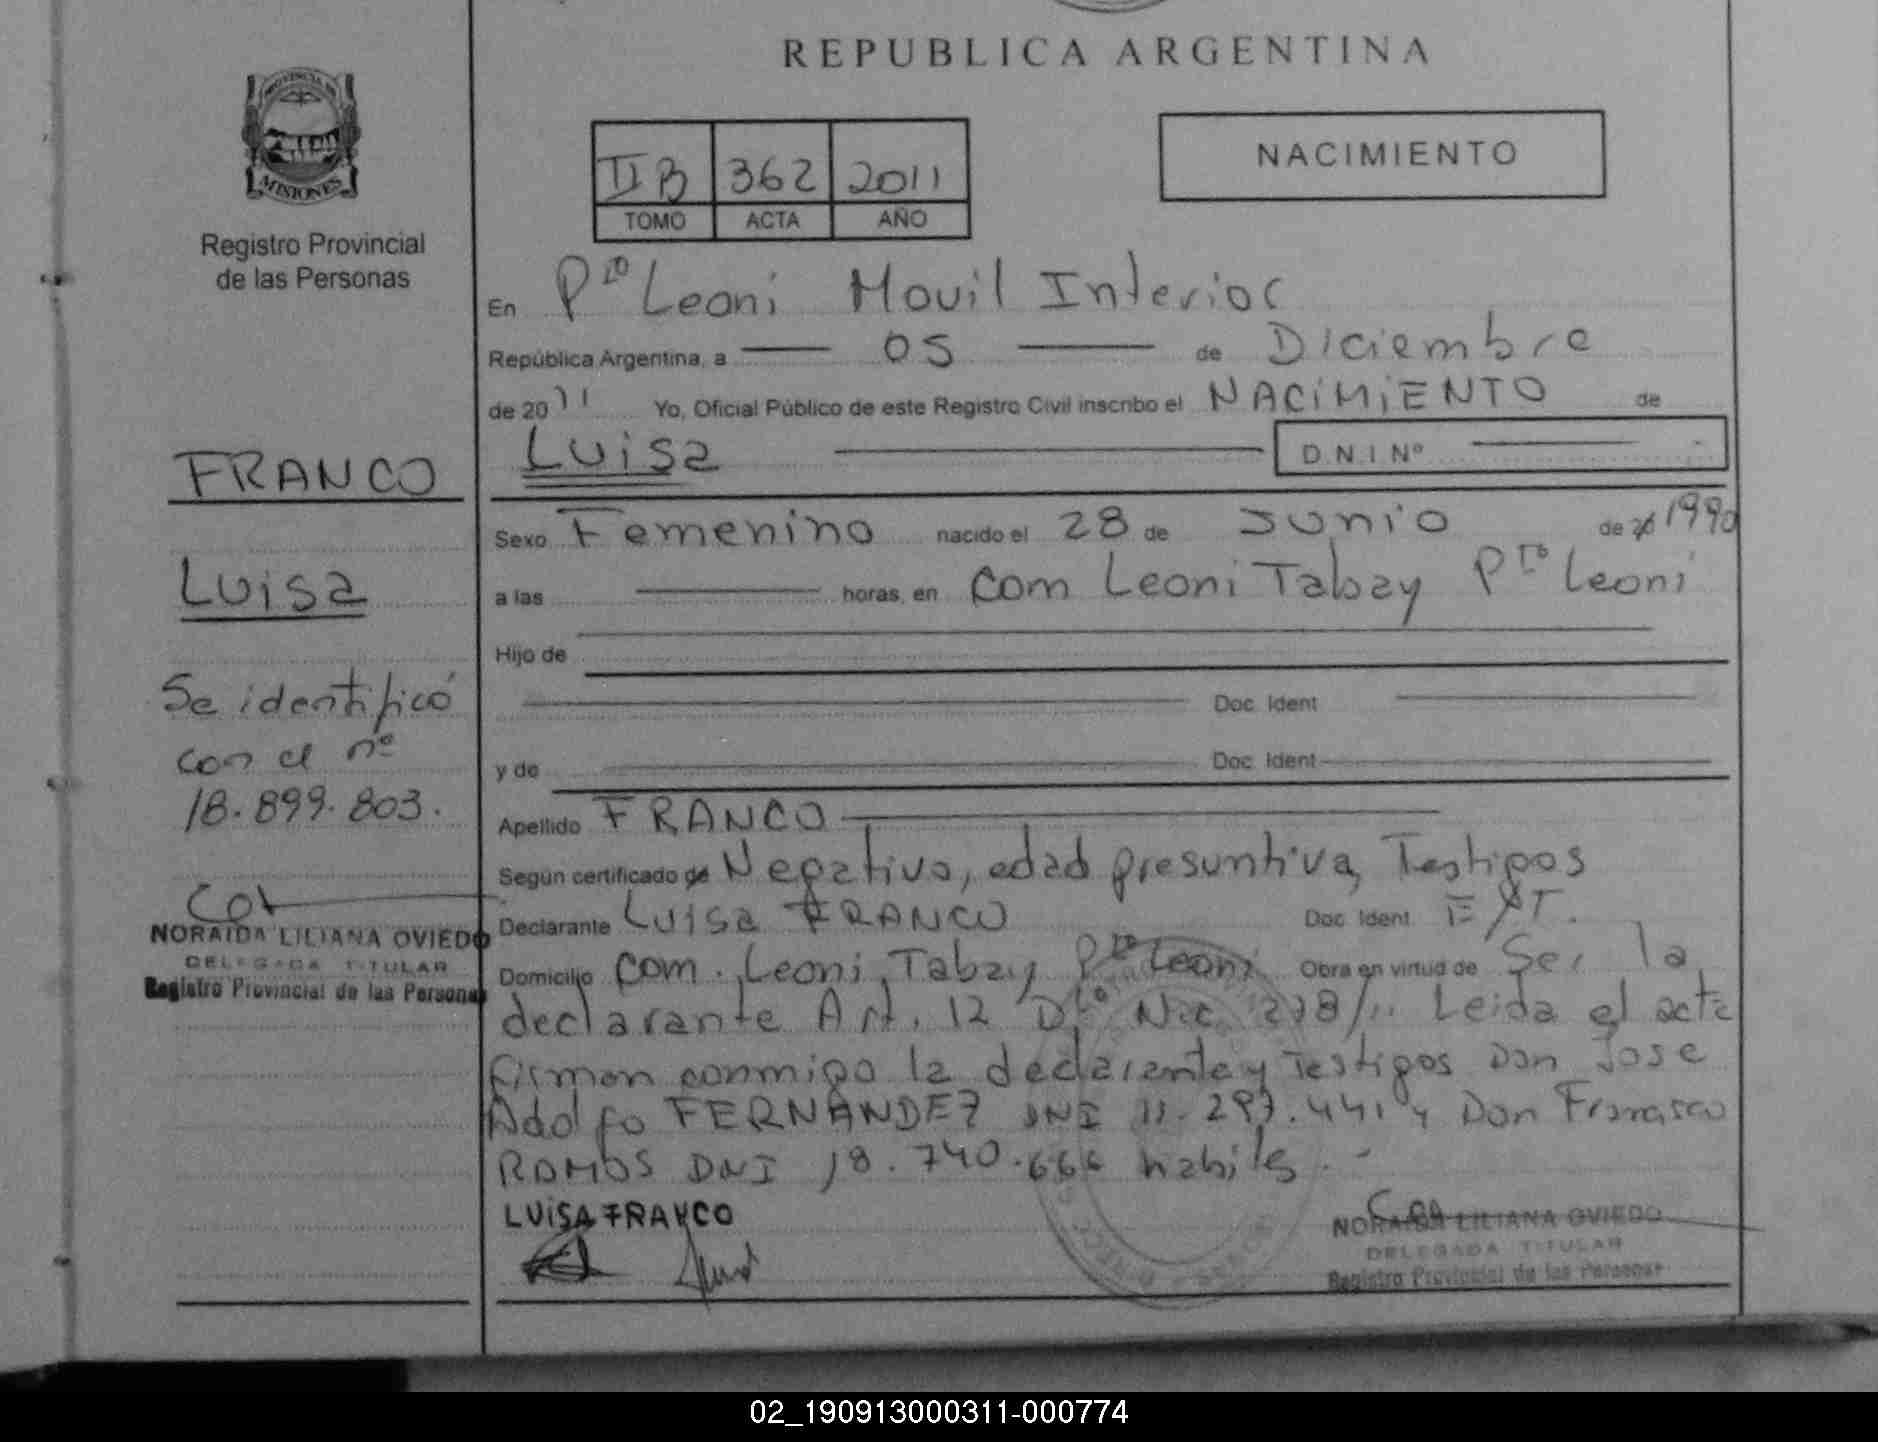 REPUBLICA ARGENTINA
PROVINCIA DE
MISIONES
Registro Provincial
de las Personas
II B 362 2011
TOMO ACTA AÑO
NACIMIENTO
En Pto Leoni Movil Interior
República Argentina, a 05 de Diciembre
de 2011 Yo, Oficial Público de este Registro Civil inscribo el NACIMIENTO de
Luisa D.N.I Nº
FRANCO
Luisa
Se identificó
con el nº
18.899.803.
NORAIDA LILIANA OVIEDO
DELEGADA TITULAR
Registro Provincial de las Personas
Sexo Femenino nacido el 28 de Junio de 1990
a las horas, en Com Leoni Tabay Pto Leoni
Hijo de
Doc. Ident
y de Doc. Ident
Apellido FRANCO
Según certificado de Negativo, edad presuntiva, Testigos
Declarante Luisa FRANCO Doc. Ident. EXT.
Domicilio Com. Leoni Tabay Pto Leoni Obra en virtud de Ser la
declarante Art. 12 Dto Nac. 278/11 Leida el acta
firman conmigo la declarante y Testigos Don Jose
Adolfo FERNANDEZ DNI 11.297.441 y Don Francisco
RAMOS DNI 18.740.666 habiles.-
LUISA FRANCO
NORAIDA LILIANA OVIEDO
DELEGADA TITULAR
Registro Provincial de las Personas
02_190913000311-000774